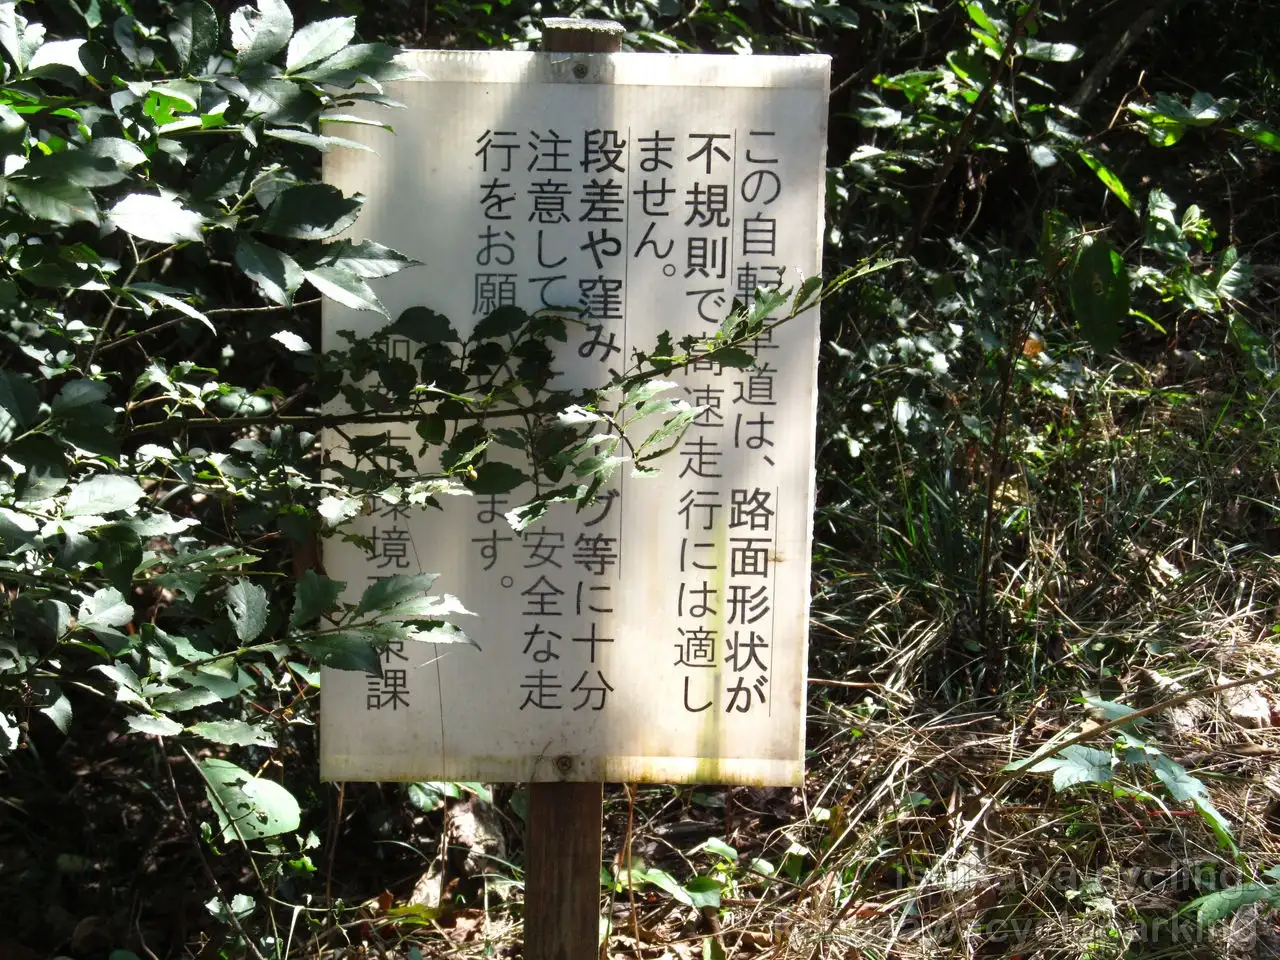 この自転車道は、路面形状が
不規則で高速走行には適し
ません。
段差や窪み、カーブ等に十分
注意して 安全な走
行をお願 ます。
加 環境 策課
ishikawa-cycling.
cycle parking